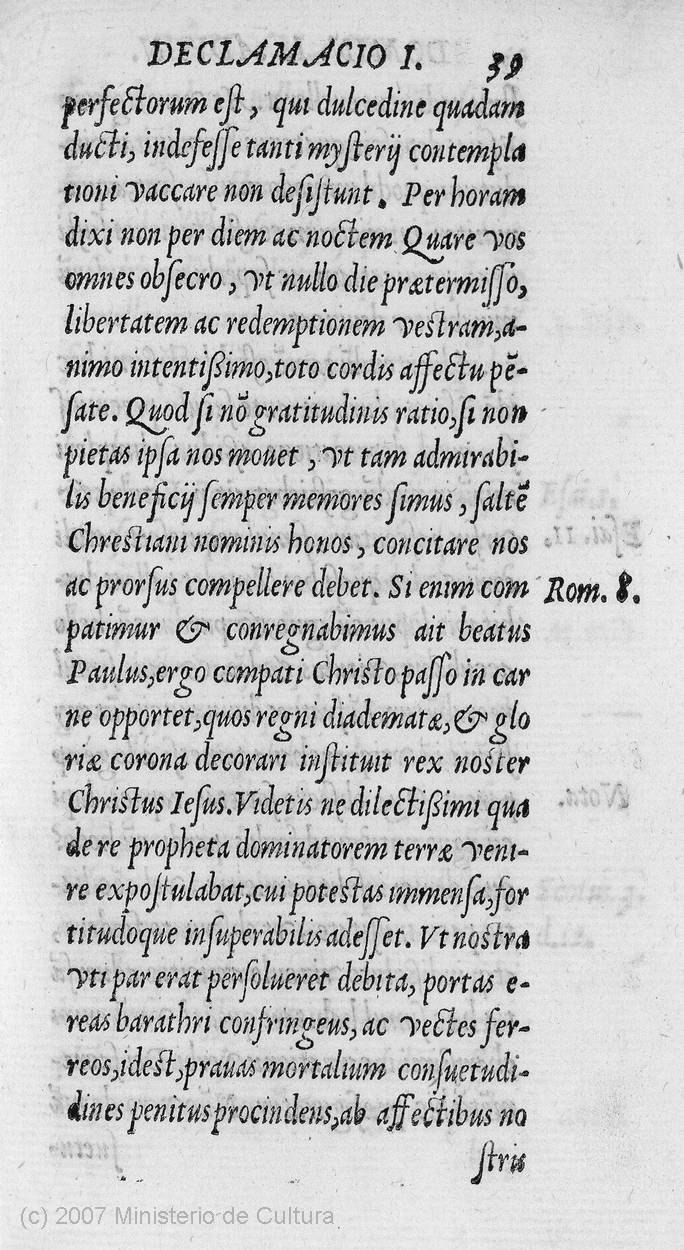 DECLAMACIO I. 39
perfectorum est, qui dulcedine quadam
ducti, indefesse tanti mysterij contempla
tioni vaccare non desistunt. Per horam
dixi non per diem ac noctem Quare vos
omnes obsecro, vt nullo die prætermisso,
libertatem ac redemptionem vestram, a-
nimo intentißimo, toto cordis affectu pē-
sate. Quod si nō gratitudinis ratio, si non
pietas ipsa nos mouet, vt tam admirabi-
lis beneficij semper memores simus, saltē
Chrestiani nominis honos, concitare nos
ac prorsus compellere debet. Si enim com
patimur & conregnabimus ait beatus
Paulus, ergo compati Christo passo in car
ne opportet, quos regni diadematæ, & glo
riæ corona decorari instituit rex noster
Christus Iesus. Videtis ne dilectißimi qua
de re propheta dominatorem terræ veni-
re expostulabat, cui potestas immensa, for
titudoque insuperabilis adesset. Vt nostra
vti par erat persolueret debita, portas e-
reas barathri confringeus, ac vectes fer-
reos, idest, prauas mortalium consuetudi-
dines penitus procindens, ab affectibus no
stris
Rom. 8.
(c) 2007 Ministerio de Cultura